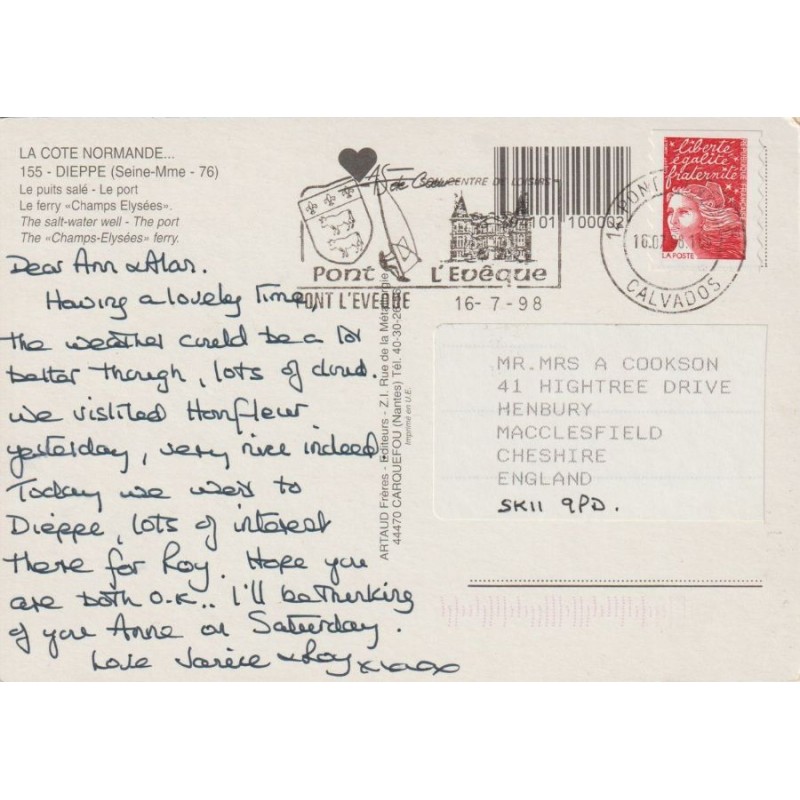 LA COTE NORMANDE...
155 - DIEPPE (Seine-Mme - 76)
Le puits salé - Le port
Le ferry «Champs Elysées».
The salt-water well - The port
The «Champs-Elysées» ferry.
Dear Ann & Alan.
Having a lovely time,
the weather could be a lot
better though, lots of cloud.
we visited Honfleur
yesterday, very nice indeed
Today we went to
Dieppe, lots of interest
there for Roy. Hope you
are both O.K.. I'll be thinking
of you Anne on Saturday.
Love & Roy xxoox
ARTAUD Frères - Editeurs - Z.I. Rue de la Métallurgie
44470 CARQUEFOU (Nantes) Tél. 40-30-26
Imprimé en U.E.
CENTRE DE LOISIRS
Pont L'Evêque
PONT L'EVEQUE 16-7-98
101 100002
14 PONT
16.07
CALVADOS
liberté
égalité
fraternité
REPUBLIQUE FRANÇAISE
LA POSTE
MR.MRS A COOKSON
41 HIGHTREE DRIVE
HENBURY
MACCLESFIELD
CHESHIRE
ENGLAND
SK11 9PD.